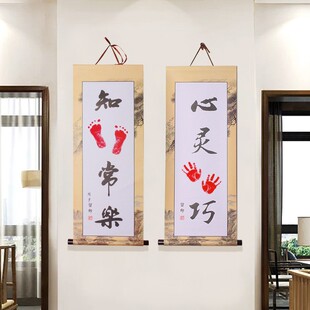 知
常
樂
心
灵
巧